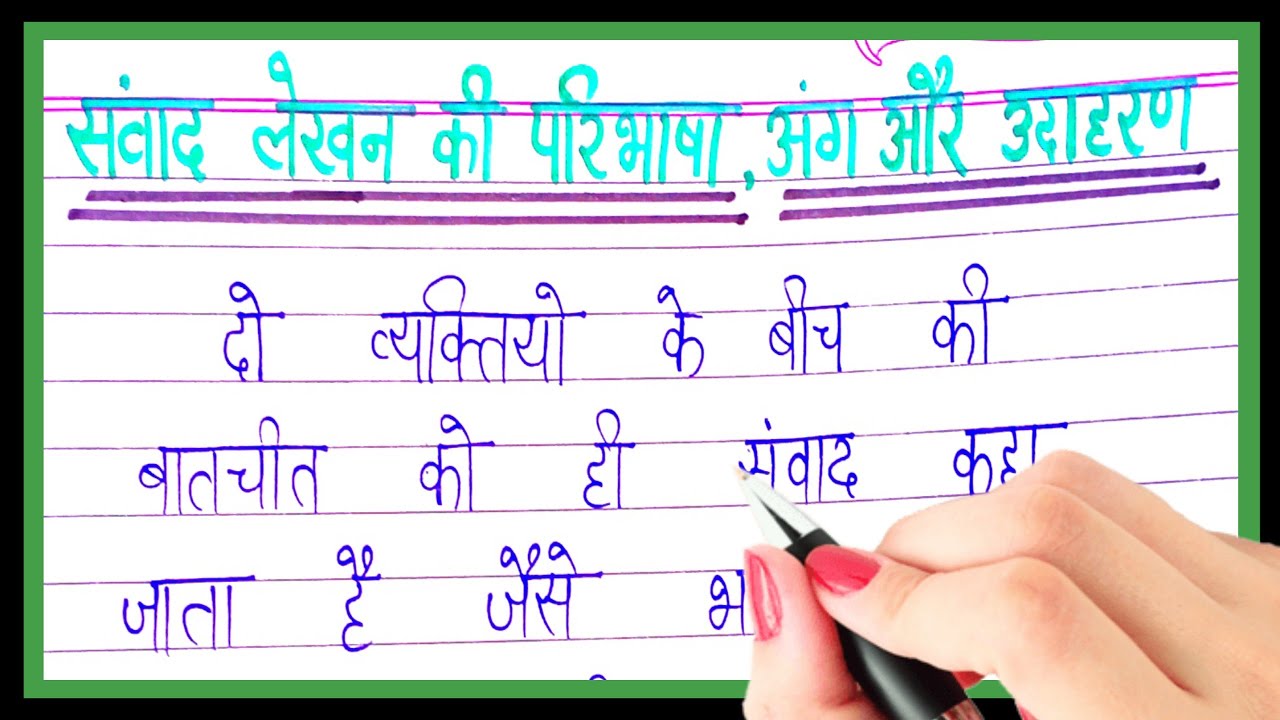 संवाद लेखन की परिभाषा, अंग और उदाहरण
दो व्यक्तियो के बीच की
बातचीत को ही संवाद कहा
जाता है जैसे